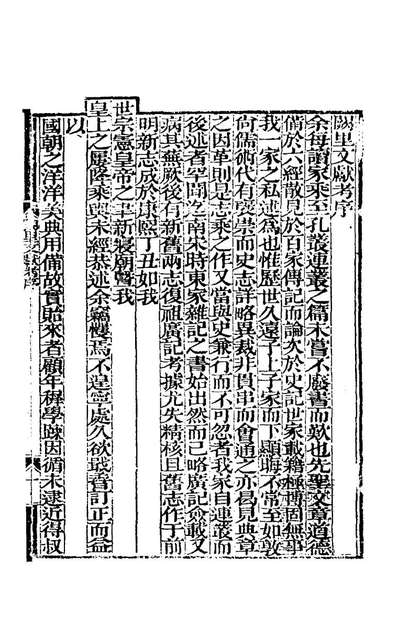 闕里文獻考序
余每讀家乘至孔叢連叢之篇未嘗不廢書而歎也先聖文章道德
備於六經散見於百家傳記而論次於史記世家載籍極博固無事
我一家之私述為也惟歷世久遠子上子家而下顯晦不常至如敦
尚儒術代有襃崇而史志詳略異裁非貫串而會通之亦曷見典章
之因革則是志乘之作又當與史兼行而不可忽者我家自連叢而
後述者罕聞之南宋時東家雜記之書始出然而已略廣記僉載又
病其蕪厥後有新舊兩志復祖廣記考據尤失精核且舊志作于前
明新志成於康熙丁丑如我
世宗憲皇帝之革新寢廟暨我
皇上之屢隆乘輿未經恭述余竊懼焉不遑寧處久欲蒐香訂正而益
以
國朝之洋洋美典用備故實貽來者顧年穉學踈因循未逮近得叔